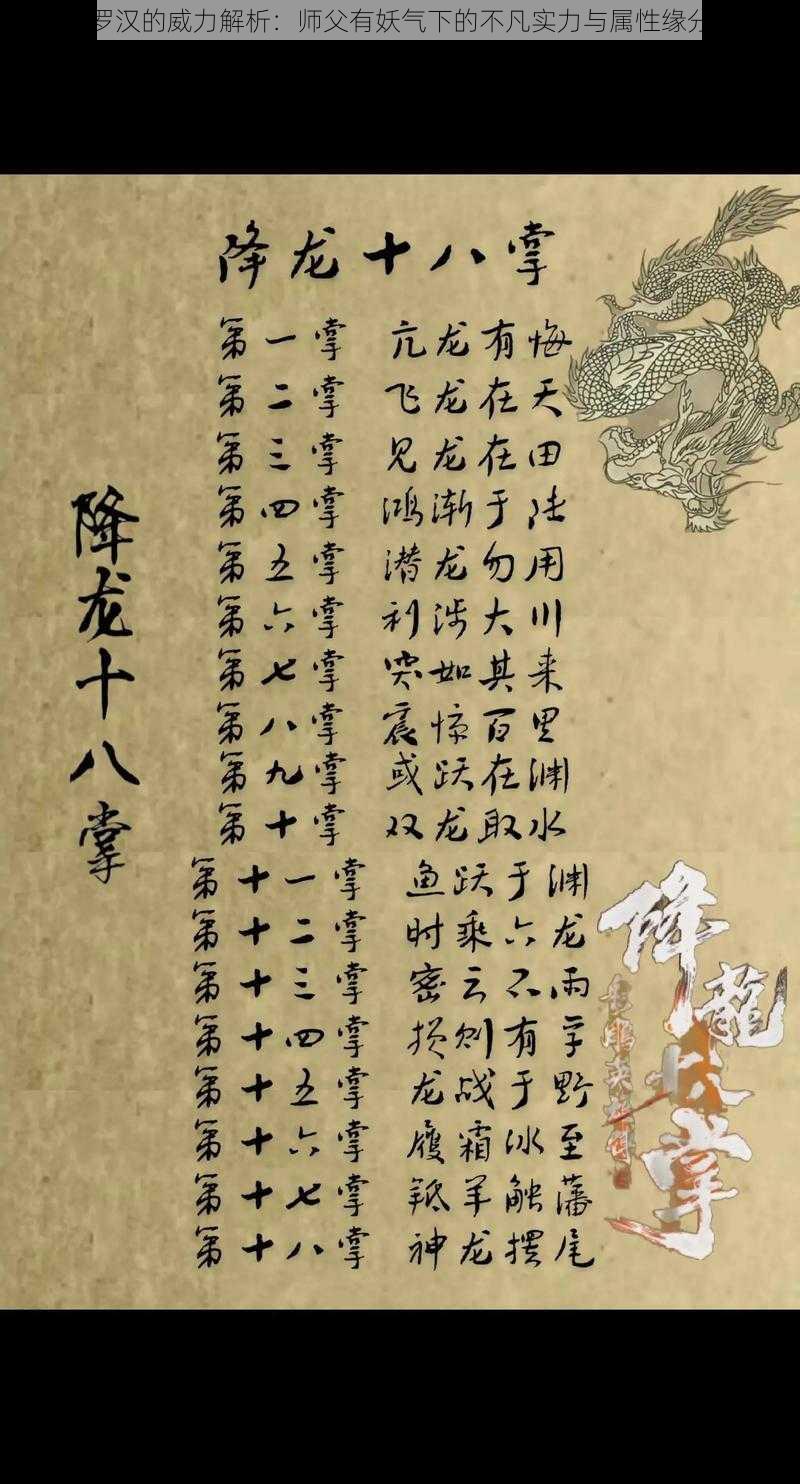 罗汉的威力解析：师父有妖气下的不凡实力与属性缘分
降龙十八掌
第一掌 亢龙有悔
第二掌 飞龙在天
第三掌 见龙在田
第四掌 鸿渐于陆
第五掌 潜龙勿用
第六掌 利涉大川
第七掌 突如其来
第八掌 震惊百里
第九掌 或跃在渊
第十掌 双龙取水
第十一掌 鱼跃于渊
第十二掌 时乘六龙
第十三掌 密云不雨
第十四掌 损则有孚
第十五掌 龙战于野
第十六掌 履霜冰至
第十七掌 羝羊触藩
第十八掌 神龙摆尾
降龙十八掌
降龍
掌